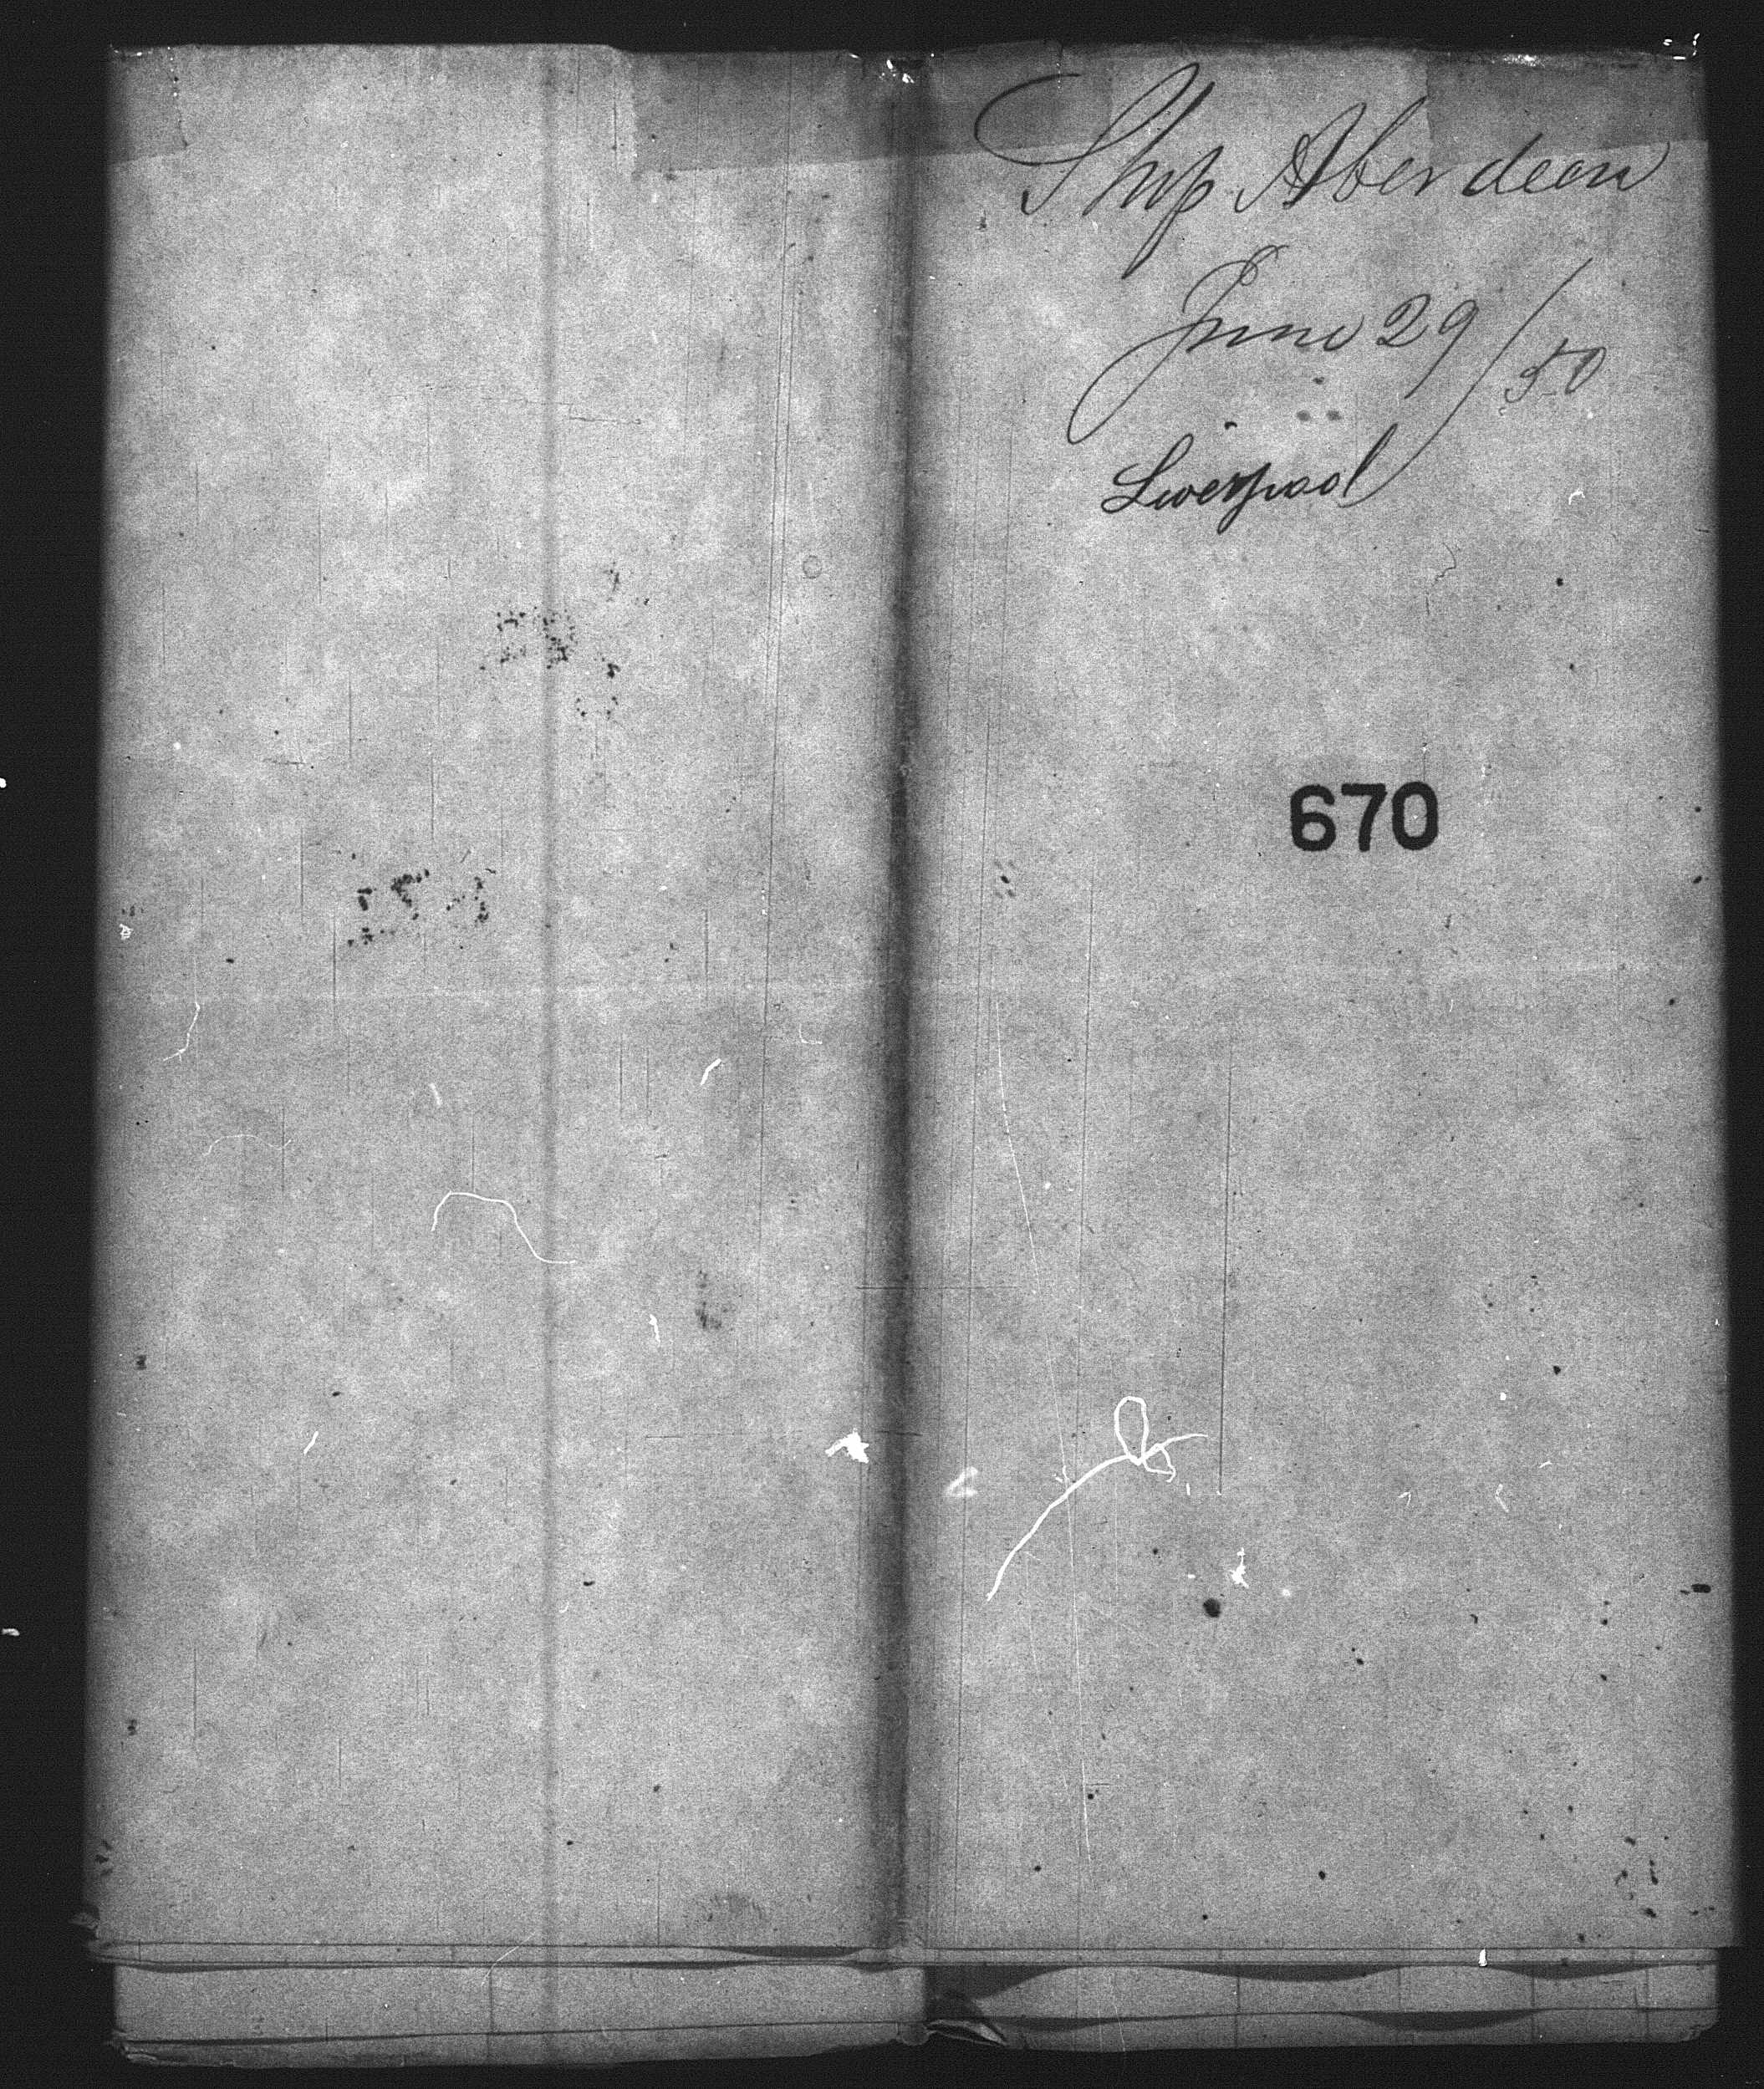 Ship Aberdeen
June 29/50
Liverpool
670